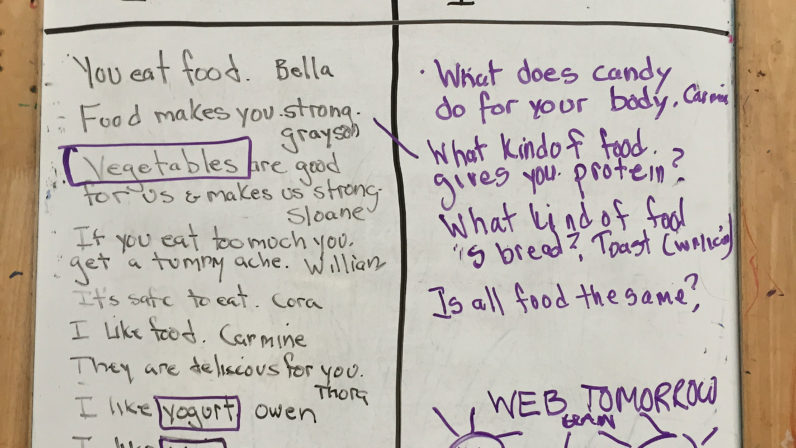 You eat food. Bella
Food makes you strong.
grayson
Vegetables are good
for us & makes us strong.
Sloane
If you eat too much you.
get a tummy ache. Willian
It's safe to eat. Cora
I like food. Carmine
They are deliscous for you.
Thora
I like yogurt owen
I like
· What does candy
do for your body. Carmine
What kind of food.
gives you protein?
What kind of food
is bread? Toast
Is all food the same?
WEB TOMORROW